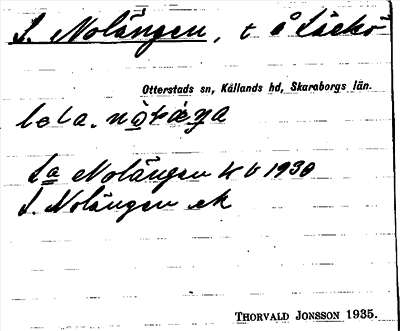 L. Nolängen, t å Läckö-
Otterstads sn, Kållands hd, Skaraborgs län.
La Nolängen 1930
L. Nolängen ek
THORVALD JONSSON 1935.